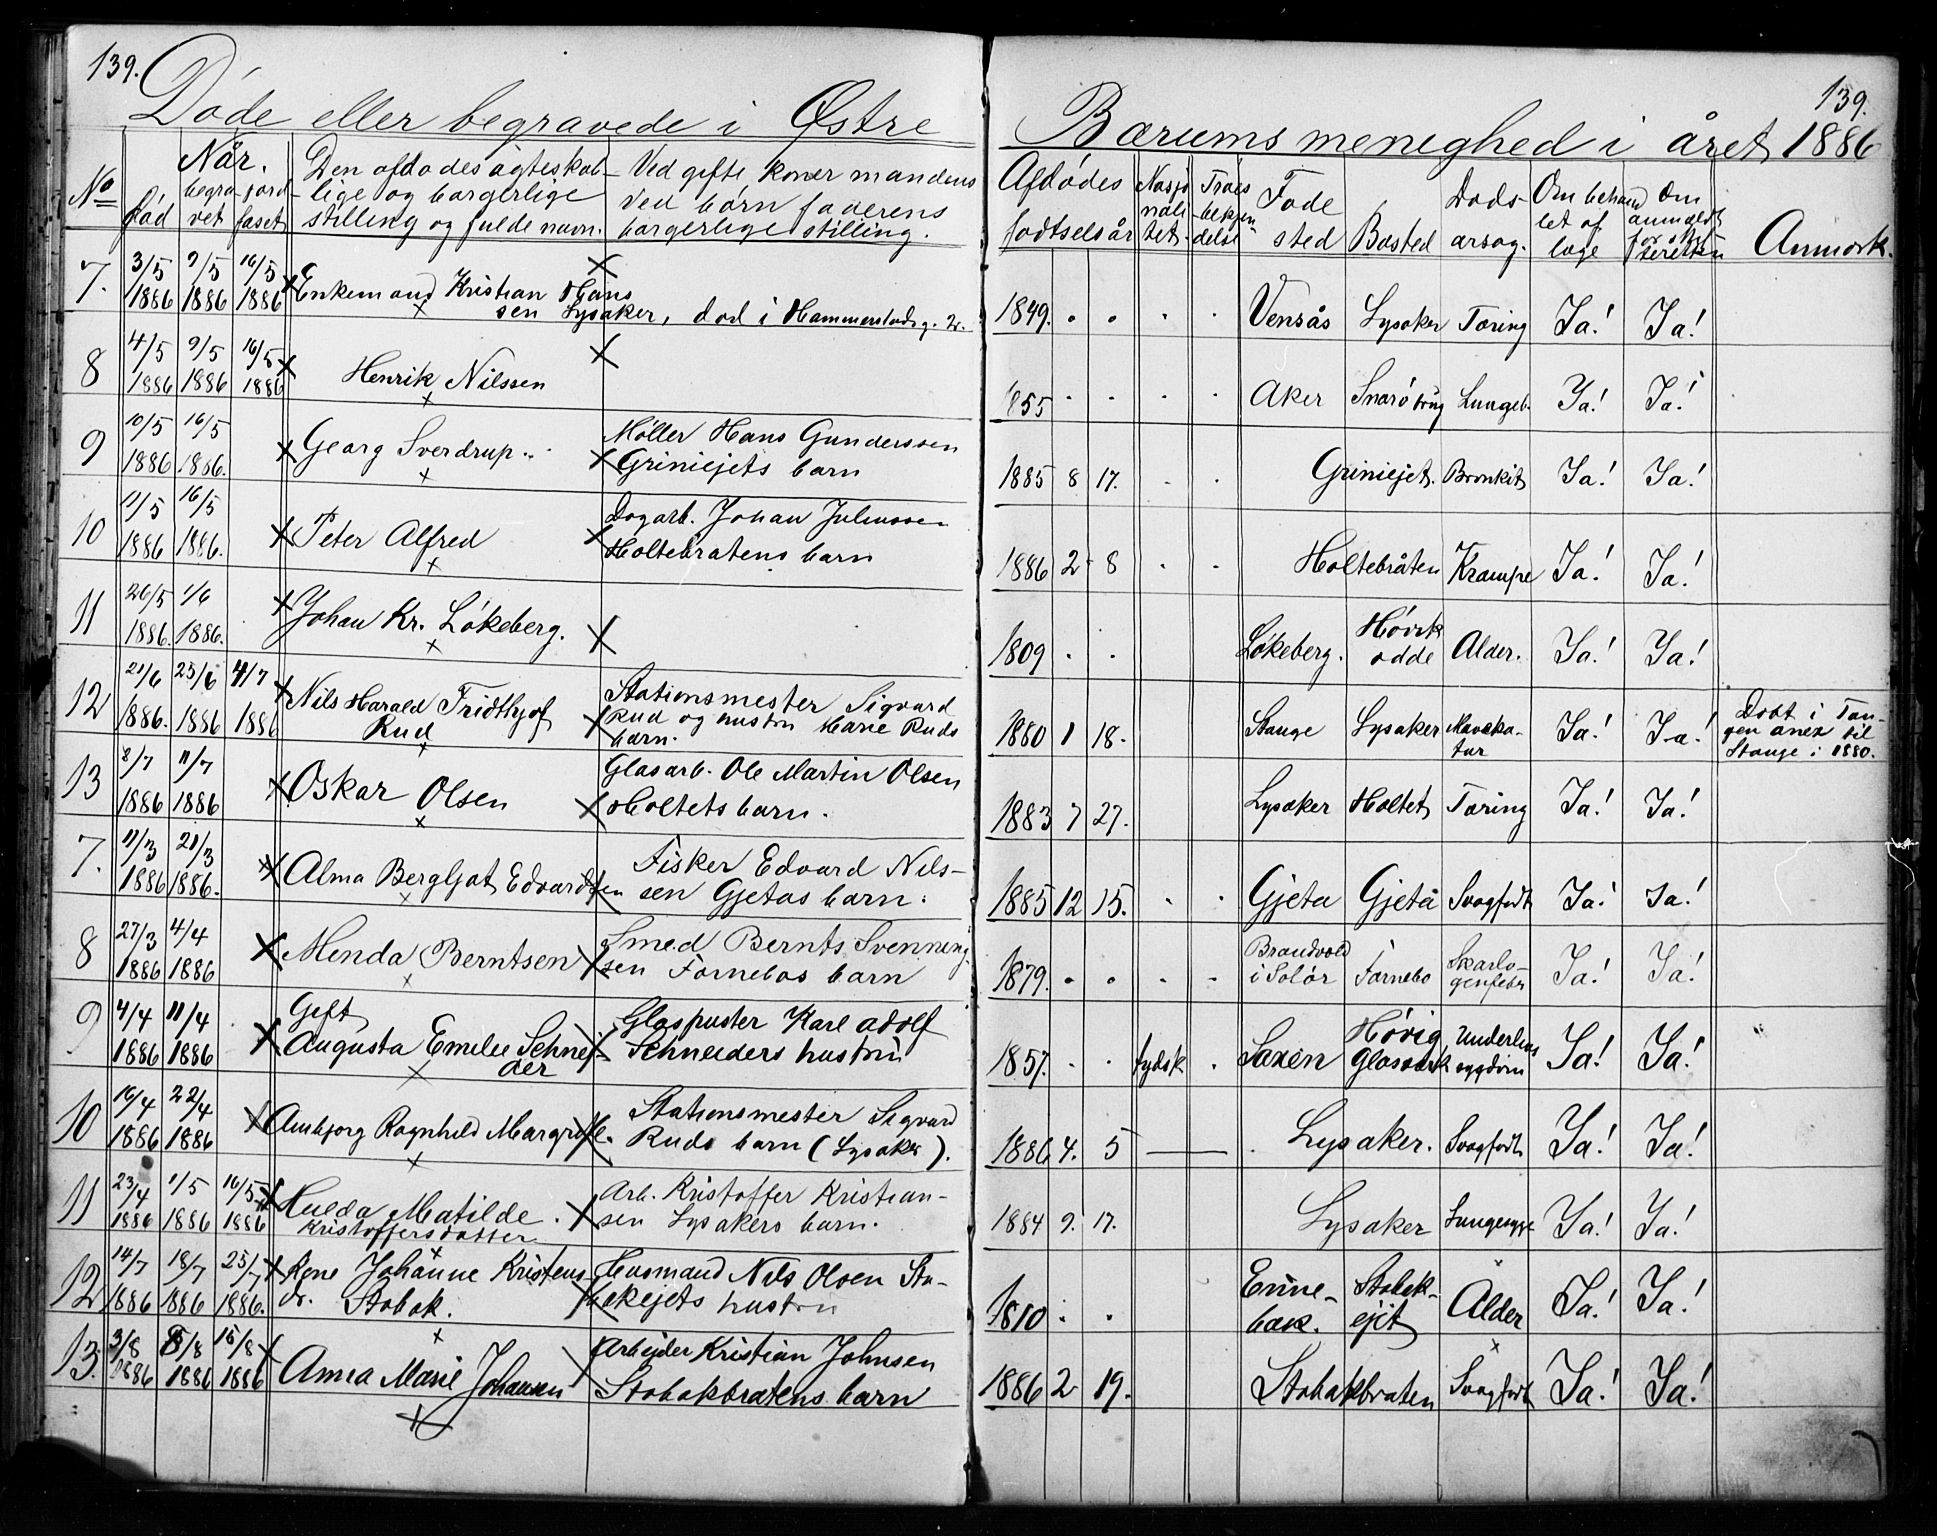 139.
139.
Døde eller begravede i Østre Bærums menighed i året 1886
No
Når.
død
begra-
vet
jord-
fæset
Den afdødes ægteskab-
lige og borgerlige
stilling og fulde navn.
Ved gifte koner mandens
Ved børn faderens
borgerlige stilling.
Afdødes
fødtselsår
Nasjo
nali
tet.
Troes
bekjen-
delse
Føde
sted
Bosted
Døds-
årsag.
Om behand
let af
læge
Om
anmældt
for skif
teretten
Anmærk.
7. 3/5 1886 9/5 1886 16/5 1886 Enkemand Kristian Hans
sen Lysaker, død i Hammerstadsg. 2.
1849. Vensås Lysaker Tæring Ja! Ja!
8 4/5 1886 9/5 1886 16/5 1886 Henrik Nilssen
1855 Aker Snarö brug Lungeb. Ja! Ja!
9 10/5 1886 16/5 1886. Georg Sverdrup Møller Hans Gunderssen
Griniejets barn
1885 8 17. Griniejet. Bronkit Ja! Ja!
10 11/5 1886 16/5 1886. Peter Alfred Dagarb. Johan Juliussen
Holtebråtens barn
1886 2 8 Holtebråten Krampe Ja! Ja!
11 26/5 1886. 1/6 1886. Johan Kr. Løkeberg.
1809 Løkeberg. Høvik
odde Alder. Ja! Ja!
12 21/6 1886. 25/6 1886 4/7 1886 Nils Harald Fridthjof
Rud
Stationsmester Sigvard
Rud og hustru Marie Ruds
barn.
1880 1 18. Stange Lysaker Maveka-
tar Ja! Ja! Døbt i Tan-
gen anex til
Stange i 1880.
13 8/7 1886 11/7 1886 Oskar Olsen Glasarb. Ole Martin Olsen
Holtets barn.
1883 7 27. Lysaker Holtet Tæring Ja! Ja!
7. 11/3 1886 21/3 1886. Alma Bergljot Edvardsen Fisker Edvard Nils-
sen Gjetas barn.
1885 12 15. Gjeta Gjeta Svagfødt Ja! Ja!
8 27/3 1886 4/4 1886 Menda Berntsen Smed Bernts Svenning
sen Fornebos barn
1879. Brandvold
i Solør Fornebo Skarla-
gensfeber Ja! Ja!
9 4/4 1886 11/4 1886 Gift
Augusta Emelie Schnei-
der
Glaspuster Karl Adolf
Schneiders hustru
1857. tydsk Saxen Høvig
Glasværk Underlivs
sygdom Ja! Ja!
10 16/4 1886 22/4 1886 Ambjorg Ragnhild Margrethe. Stationsmester Sigvard
Ruds barn (Lysaker).
1886 4. 5 Lysaker. Svagfødt Ja! Ja!
11 23/4 1886 1/5 1886 16/5 1886 Hulda Matilde
Kristoffersdatter
Arb. Kristoffer Kristian-
sen Lysakers barn.
1884 9. 17. Lysaker Lungesyge Ja! Ja!
12 14/7 1886 18/7 1886 25/7 1886. Kone Johanne Kristens
dr. Stabak.
Husmand Nils Olsen Sta-
bakejets hustru
1810 Enne-
bak. Stabak-
ejet Alder Ja! Ja!
13. 3/8 1886 8/8 1886 15/8 1886 Anna Marie Johansen Arbejder Kristian Johnsen
Stabakbråtens barn
1886 2 19. Stabakbraten Svagfødt Ja! Ja!